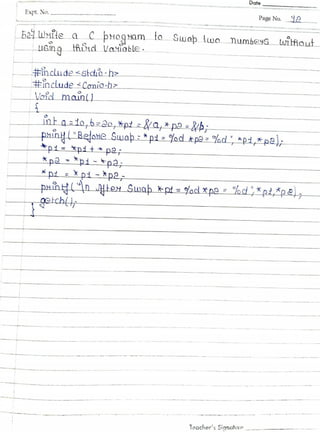 Date
Expt. No.
Page No. 40
Write a C program to Swap two numbers without
using third Variable.
#include <stdio.h>
#include <Conio.h>
Void main()
{
int a=10, b=20, *p1 = &a, *p2 = &b;
printf("Before Swap = *p1 = %d *p2 = %d", *p1, *p2);
*p1 = *p1 + *p2;
*p2 = *p1 - *p2;
*p1 = *p1 - *p2;
printf("\n After Swap *p1 = %d *p2 = %d", *p1, *p2);
getch();
}
Teacher's Signature